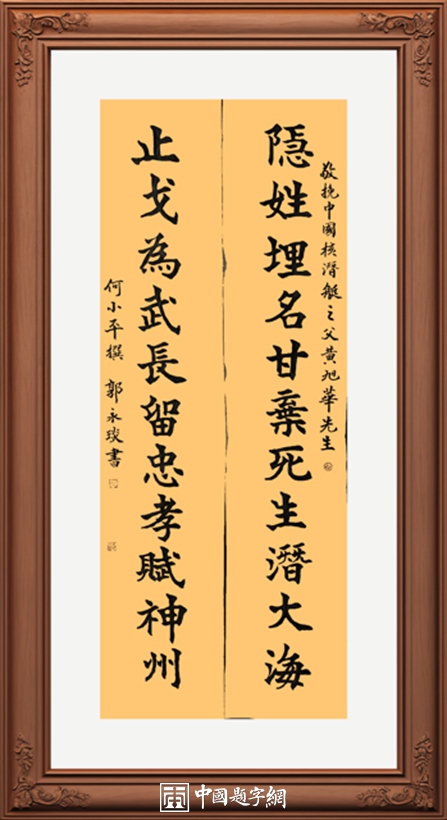 敬挽中國核潛艇之父黃旭華先生
隱姓埋名甘棄死生潛大海
止戈為武長留忠孝賦神州
何小平撰 郭永琰書
中國題字網